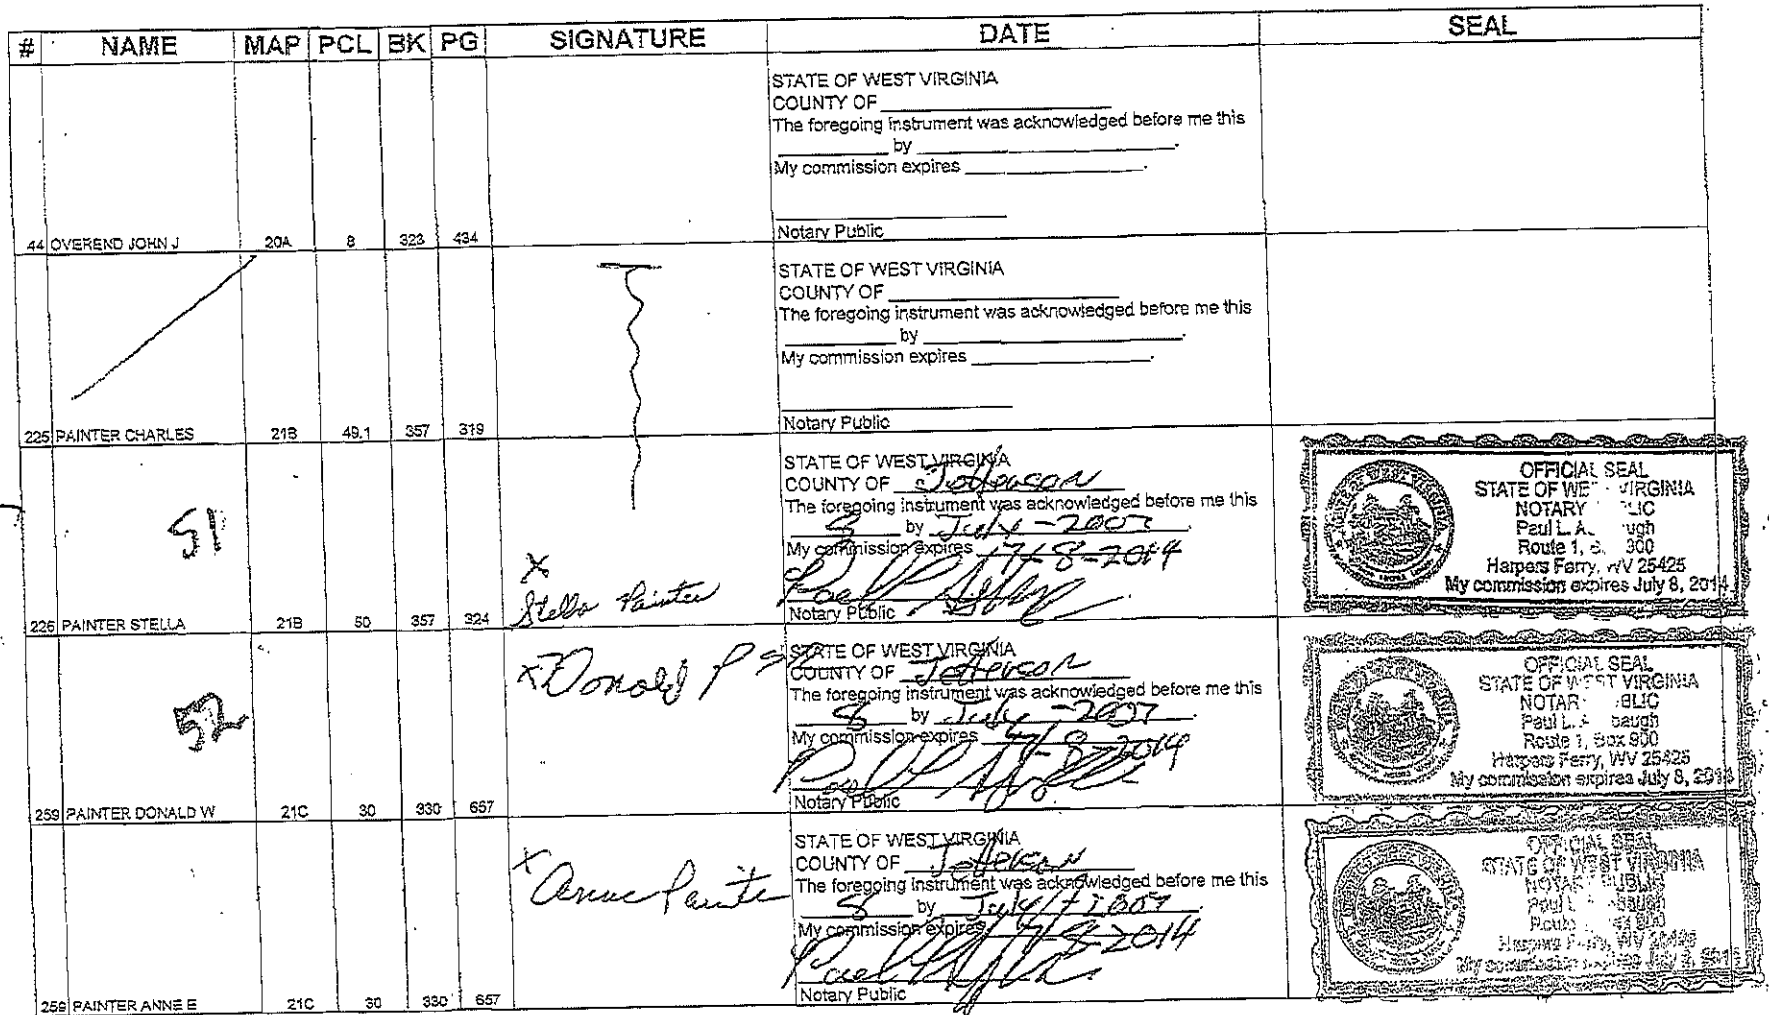 # NAME MAP PCL BK PG SIGNATURE DATE SEAL
STATE OF WEST VIRGINIA
COUNTY OF
The foregoing instrument was acknowledged before me this
by
My commission expires
Notary Public
44 OVEREND JOHN J 20A 8 323 434
STATE OF WEST VIRGINIA
COUNTY OF
The foregoing instrument was acknowledged before me this
by
My commission expires
Notary Public
225 PAINTER CHARLES 21B 49.1 357 319
51
X
Stella Painter
STATE OF WEST VIRGINIA
COUNTY OF Jefferson
The foregoing instrument was acknowledged before me this
8 by July - 2007
My commission expires 7-8-2014
Notary Public
OFFICIAL SEAL
STATE OF WE VIRGINIA
NOTARY LIC
Paul L. A ugh
Route 1, 300
Harpers Ferry, WV 25425
My commission expires July 8, 2014
226 PAINTER STELLA 21B 50 357 324
52
X Donald P
STATE OF WEST VIRGINIA
COUNTY OF Jefferson
The foregoing instrument was acknowledged before me this
8 by July - 2007
My commission expires 7-8-2014
Notary Public
OFFICIAL SEAL
STATE OF WEST VIRGINIA
NOTAR BLIC
Paul L. A baugh
Route 1, Box 900
Harpers Ferry, WV 25425
My commission expires July 8, 2014
259 PAINTER DONALD W 21C 30 330 657
X Anne Painte
STATE OF WEST VIRGINIA
COUNTY OF Jefferson
The foregoing instrument was acknowledged before me this
8 by July 2007
My commission expires 7-8-2014
Notary Public
OFFICIAL SEAL
STATE OF WEST VIRGINIA
NOTARY PUBLIC
Paul L. baugh
Route 900
Harpers Ferry, WV 25425
My commission expires July 8, 2014
259 PAINTER ANNE E 21C 30 330 657